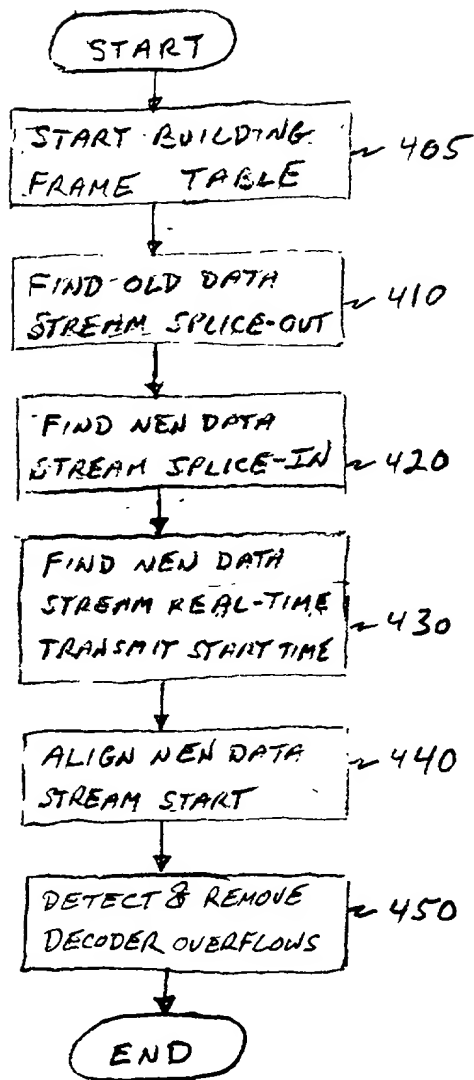 START
START BUILDING
FRAME TABLE
405
FIND OLD DATA
STREAM SPLICE-OUT
410
FIND NEW DATA
STREAM SPLICE-IN
420
FIND NEW DATA
STREAM REAL-TIME
TRANSMIT START TIME
430
ALIGN NEW DATA
STREAM START
440
DETECT & REMOVE
DECODER OVERFLOWS
450
END